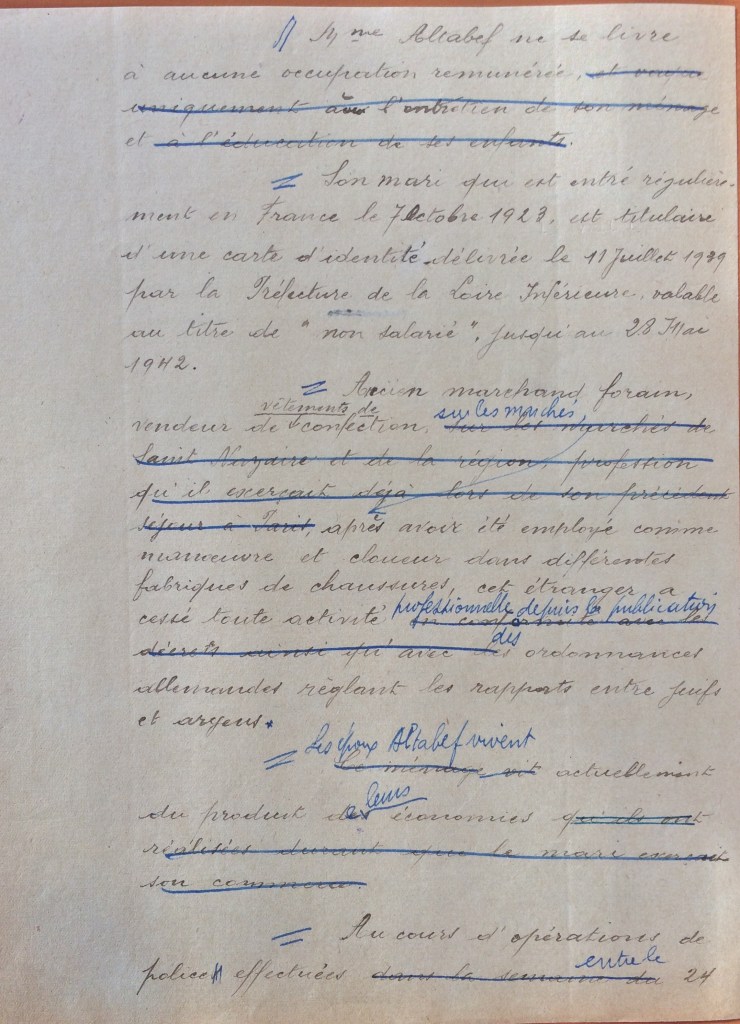 Mme Altabef ne se livre
à aucune occupation remunérée, et vaque
uniquement à l'entretien de son ménage
et à l'éducation de ses enfants.
= Son mari qui est entré régulière-
ment en France le 7 Octobre 1923, est titulaire
d'une carte d'identité délivrée le 11 Juillet 1939
par la Préfecture de la Loire Inférieure, valable
au titre de "non salarié", jusqu'au 28 Mai
1942.
= Ancien marchand forain,
vêtements de sur les marchés,
vendeur de confection, sur les marchés de
Saint Nazaire et de la région, profession
qu'il exerçait déjà lors de son précédent
séjour à Paris, après avoir été employé comme
manœuvre et cloueur dans différentes
fabriques de chaussures, cet étranger a
professionnelle depuis la publication
cessé toute activité en conformité avec les
des
décrets ainsi qu'avec les ordonnances
allemandes règlant les rapports entre juifs
et aryens.
Les époux Altabef vivent
= Le ménage vit actuellement
leurs
du produit des économies qu'ils ont
réalisées durant que le mari exerçait
son commerce.
= Au cours d'opérations de
entre le
police effectuées dans la semaine du 24